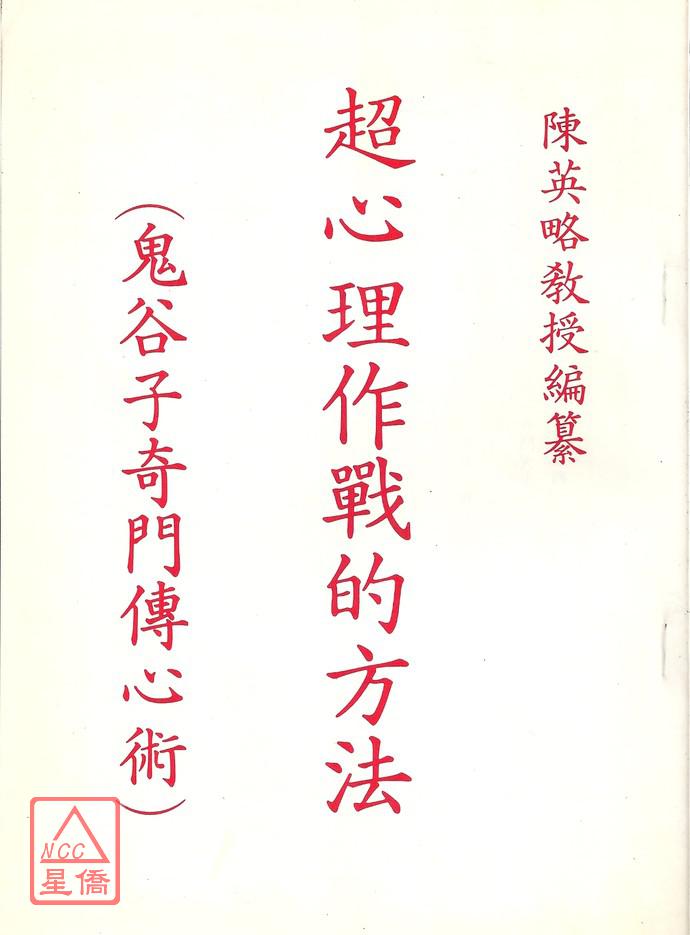 陳英略教授編纂
超心理作戰的方法
（鬼谷子奇門傳心術）
NCC
星僑